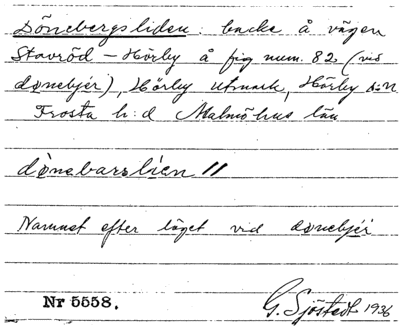 Dönebergsliden: backe å vägen
Stavröd – Hörby å fig num. 82 (vid
dønebjér), Hörby utmark, Hörby s:n
Frosta h:d Malmöhus län
dønebarslien //
Namnet efter läget vid dønebjér
Nr 5558. G. Sjöstedt 1936